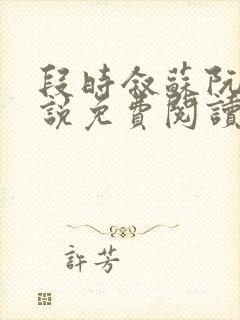 段時敘蘇阮
說免費閱讀
許芳